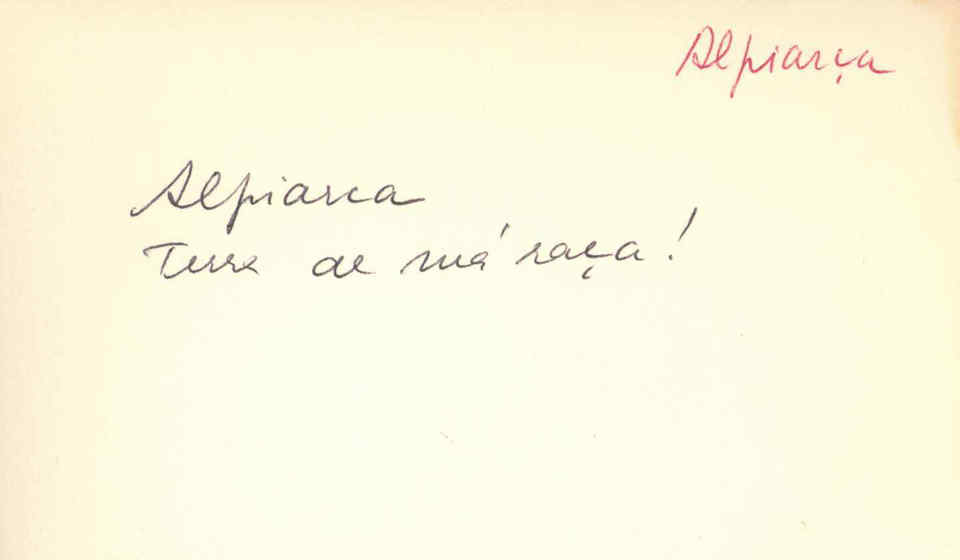 Alpiarça
Alpiarca
Terra de má raça!